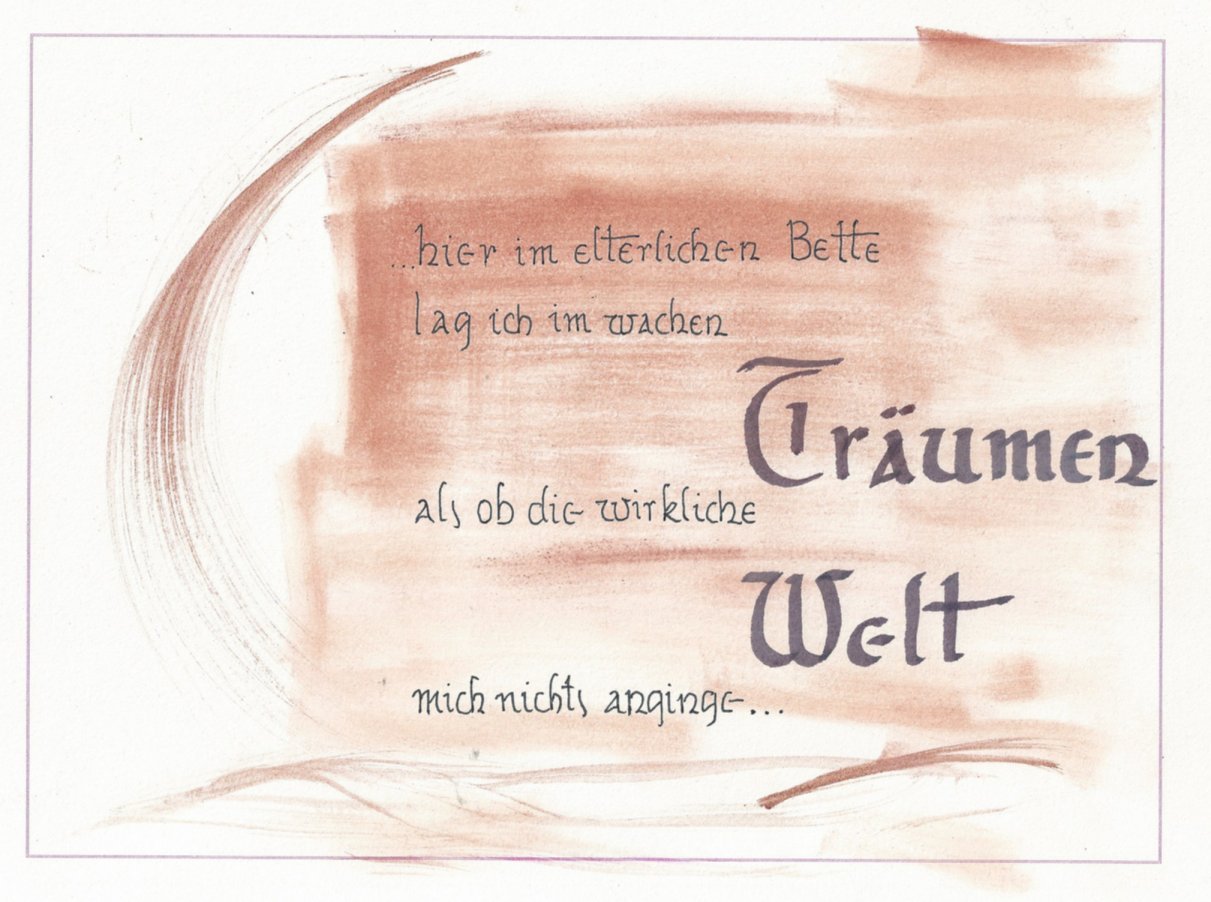 ...hier im elterlichen Bette
lag ich im wachen
Träumen
als ob die wirkliche
Welt
mich nichts anginge...